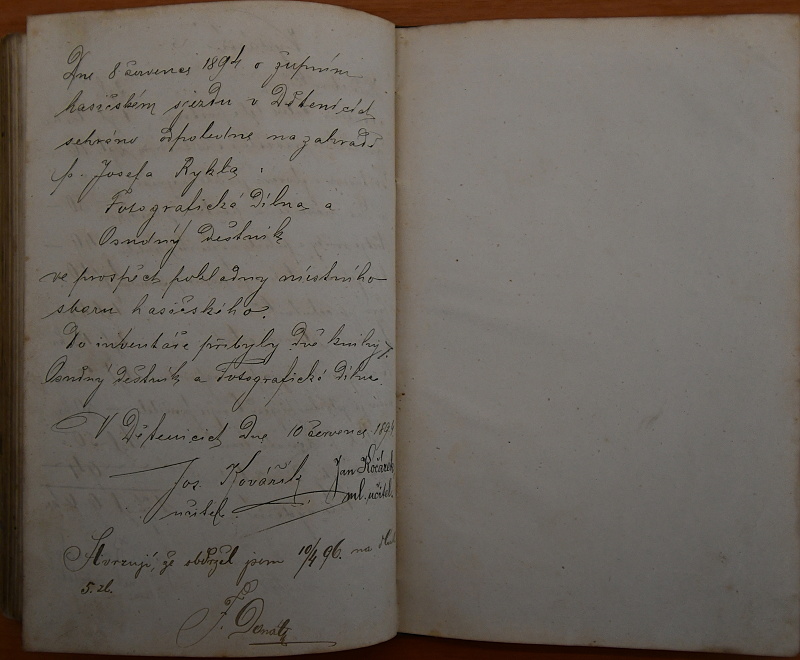 Dne 8 července 1894 o župním
hasičském sjezdu v Dětenicích
sehráno odpoledne na zahradě
p. Josefa Rykla:
Fotografická dílna a
Osudný deštník
ve prospěch pokladny místního
sboru hasičského.
Do inventáře přibyly dvě knihy,
Osudný deštník a Fotografická dílna.
V Dětenicích dne 10 července 1894
Jos. Kovářík
učitel.
Jan Kočárek
ml. učitel.
Stvrzuji, že obdržel jsem 10/4 96. na
5. zl.
F. Donáť